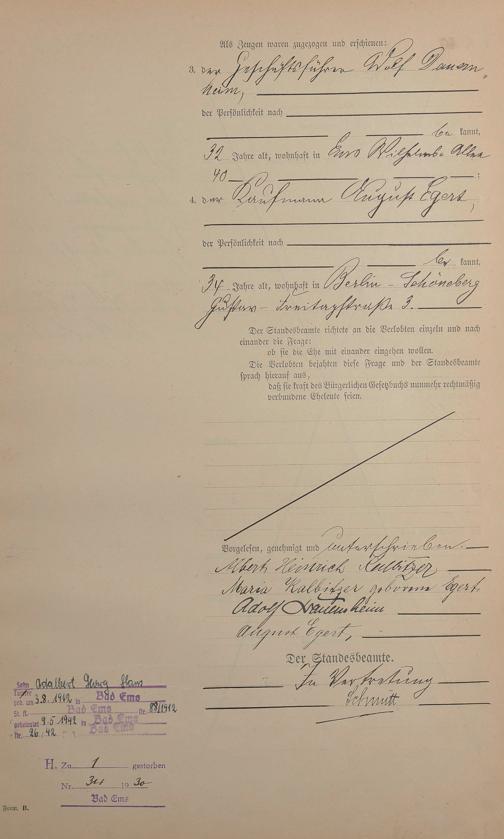 Als Zeugen waren zugezogen und erschienen:
3. der Geschäftsführer Adolf
heim,
der Persönlichkeit nach
be kannt,
32 Jahre alt, wohnhaft in Ems Wilhelms Allee
40 ;
4. der Kaufmann August Egert,
der Persönlichkeit nach
be kannt,
34 Jahre alt, wohnhaft in Berlin-Schöneberg
Gustav-Freitagstraße 3.
Der Standesbeamte richtete an die Verlobten einzeln und nach
einander die Frage:
ob sie die Ehe mit einander eingehen wollen.
Die Verlobten bejahten diese Frage und der Standesbeamte
sprach hierauf aus,
daß sie kraft des Bürgerlichen Gesetzbuchs nunmehr rechtmäßig
verbundene Eheleute seien.
Vorgelesen, genehmigt und unterschrieben.
Albert Heinrich Kalbitzer
Maria Kalbitzer geborene Egert.
Adolf
August Egert,
Der Standesbeamte.
In Vertretung
Schmitt
Sohn Adalbert Georg Hans
geb. am 3.8.1912 in Bad Ems
St. A. Bad Ems Nr. 88/1912
geheiratet 9.5.1942 in Bad Ems
Nr. 26/42 Bad Ems
H. Zu. 1 gestorben
Nr. 19 30
Bad Ems
Form. B.